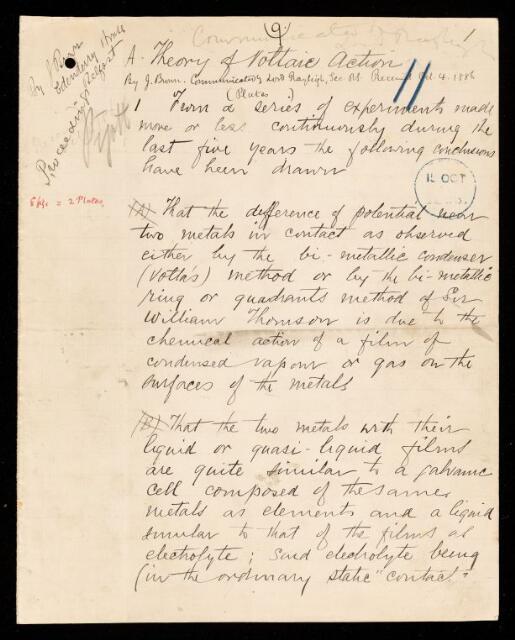 9
1
By J Brown
Edenderry House
Belfast
Proceedings
A Theory of Voltaic Action
By J. Brown. Communicated by Lord Rayleigh, Sec. R.S. Received Oct. 4. 1886
(Plates )
11
1 From a series of experiments made
more or less continuously during the
last five years the following conclusions
have been drawn
15 OCT
5 figs. = 2 Plates
(A) That the difference of potential near
two metals in contact as observed
either by the bi-metallic condenser
(Volta's) method or by the bi-metallic
ring or quadrants method of Sir
William Thomson is due to the
chemical action of a film of
condensed vapour or gas on the
surfaces of the metals
(B) That the two metals with their
liquid or quasi-liquid films
are quite similar to a galvanic
cell composed of the same
metals as elements and a liquid
similar to that of the films as
electrolyte; said electrolyte being
(in the ordinary static "contact"